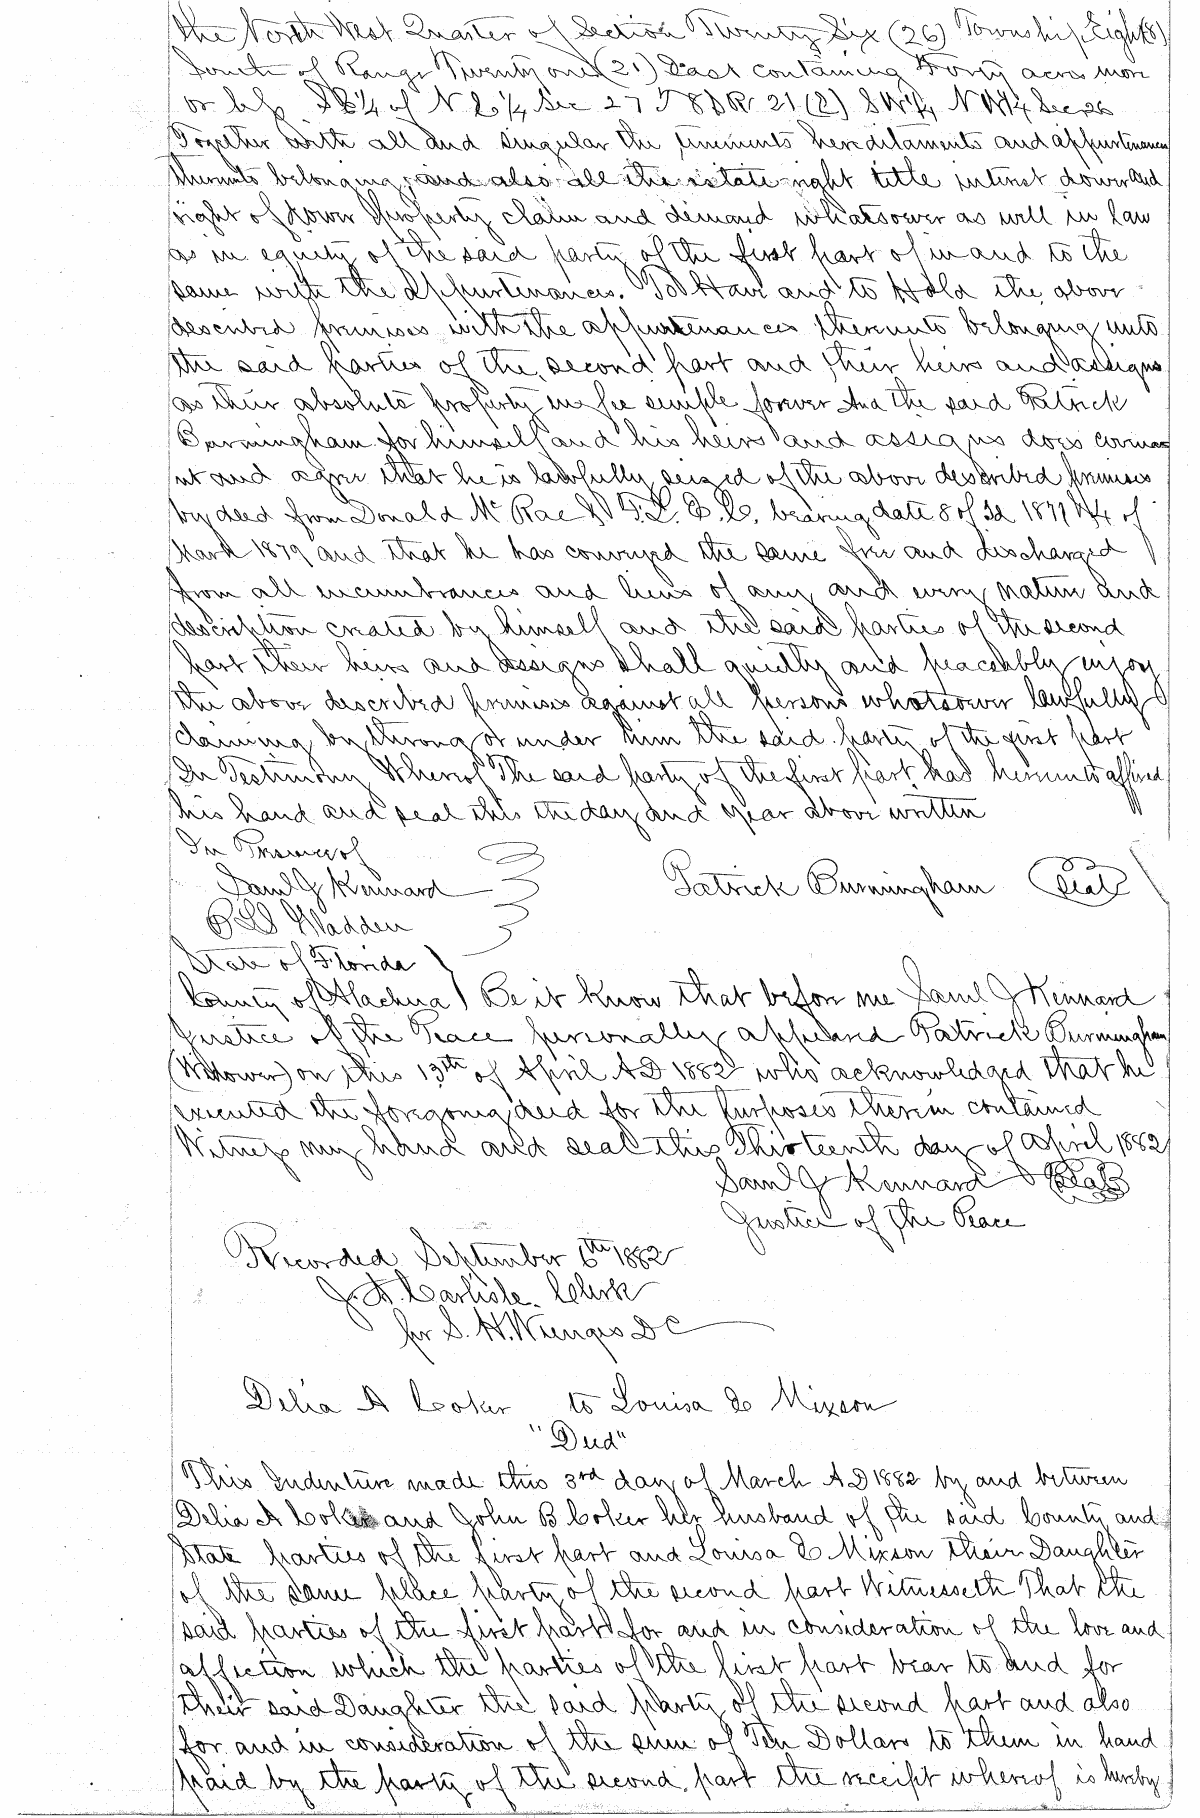 the North West Quarter of Section Twenty Six (26) Township Eight (8)
South of Range Twenty one (21) East containing Forty acres more
or less SE¼ of N E ¼ Sec 27 T 8 S R 21 (2) SW¼ NW¼ Sec 26
Together with all and singular the tenements hereditaments and appurtenances
thereunto belonging, and also all the estate right title interest dower and
right of dower Property claim and demand whatsoever as well in law
as in equity of the said party of the first part of in and to the
same with the appurtenances. To Have and to Hold the above
described premises with the appurtenances thereunto belonging unto
the said parties of the second part and their heirs and assigns
as their absolute property in fee simple forever And the said Patrick
Burmingham for himself and his heirs and assigns does covena
nt and agree that he is lawfully seized of the above described premises
by deed from Donald Mc Rae bearing date 8 of of
March 1879 and that he has conveyed the same free and discharged
from all incumbrances and liens of any and every nature and
description created by himself and the said parties of the second
part their heirs and assigns shall quietly and peaceably enjoy
the above described premises against all persons whatsoever lawfully
claiming by throug or under him the said party of the first part
In Testimony Whereof The said party of the first part had hereunto affixed
his hand and seal this the day and year above written
In Presence of
Saml J Kennard
Patrick Burmingham Seal
Madden
State of Florida
County of Alachua } Be it know that before me Saml J Kennard
Justice of the Peace personally appeared Patrick Burmingham
(Widower) on this 13th of April AD 1882 who acknowledged that he
executed the foregoing deed for the purposes therein contained
Witness my hand and seal this Thirteenth day of April 1882
Saml J Kennard Seal
Justice of the Peace
Recorded September 6th 1882
J. A. Carlisle. Clerk
per S. H. Wienges D C
Delia A Coker to Louisa E Mixson
"Deed"
This Indenture made this 3rd day of March AD 1882 by and between
Delia A Coker and John B Coker her husband of the said County and
State parties of the first part and Louisa E Mixson their Daughter
of the same place party of the second part Witnesseth That the
said parties of the first part for and in consideration of the love and
affection which the parties of the first part bear to and for
their said Daughter the said party of the second part and also
for and in consideration of the sum of Ten Dollars to them in hand
paid by the party of the second part the receipt whereof is hereby